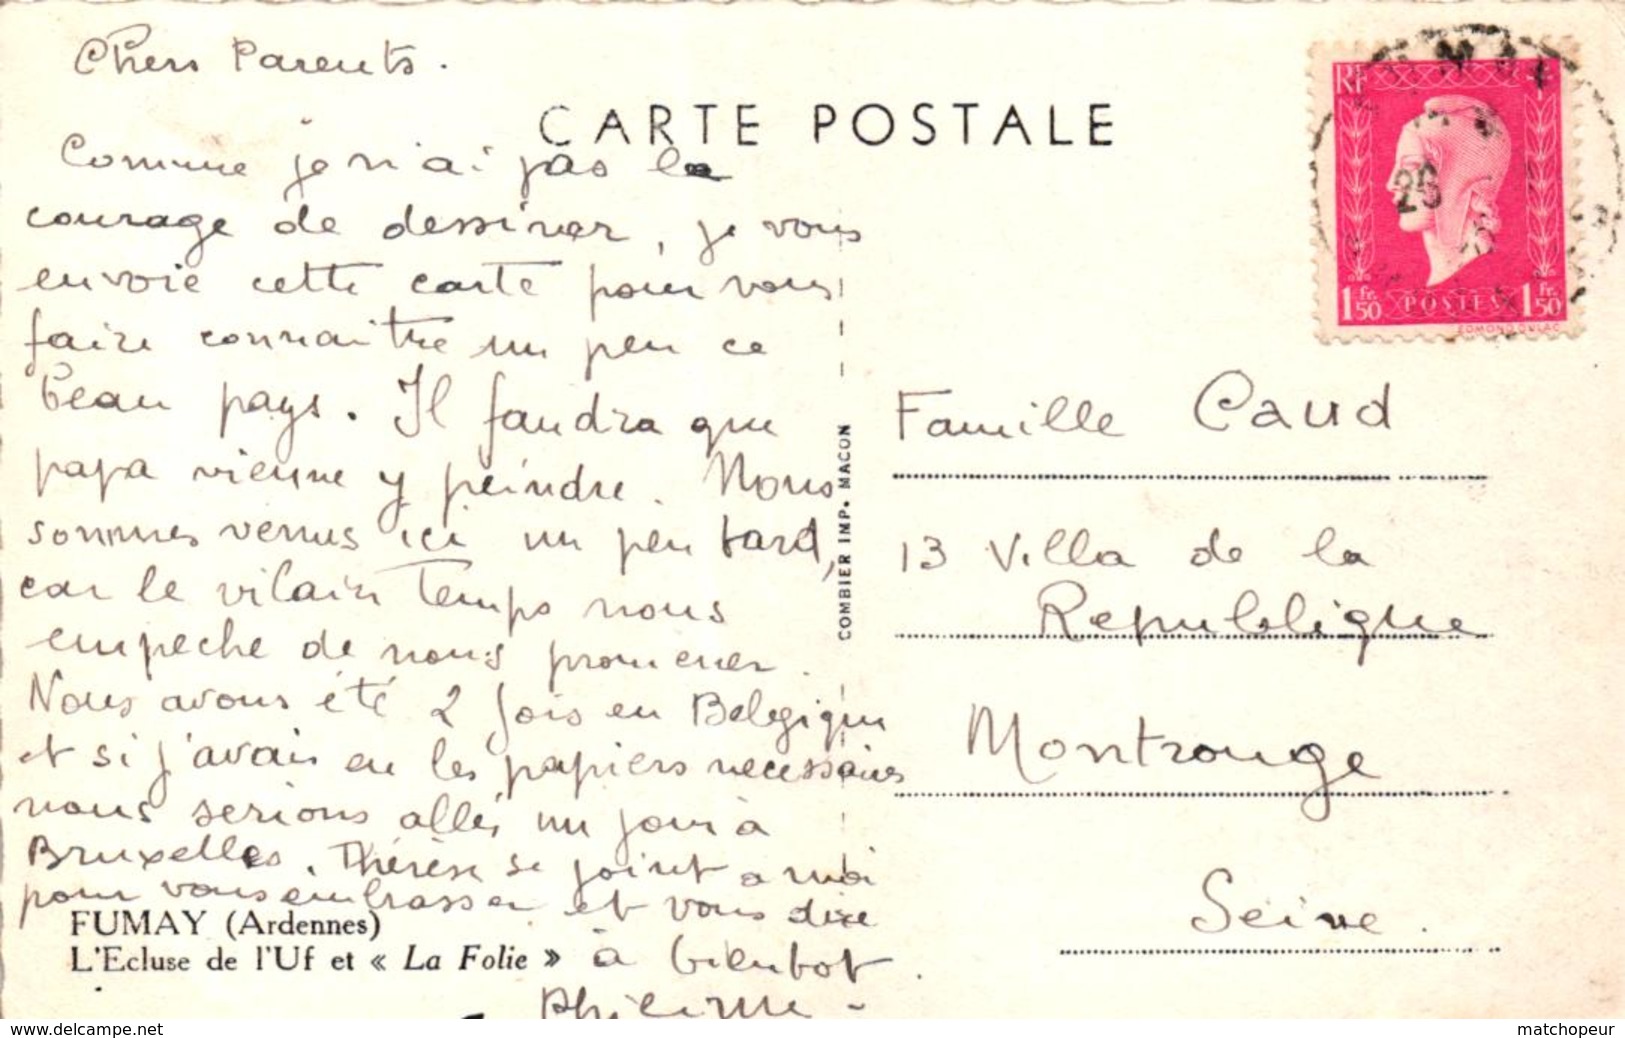 Chers Parents.
CARTE POSTALE
Comme je n'ai pas le
courage de dessiner, je vous
envoie cette carte pour vous
faire connaitre un peu ce
beau pays. Il faudra que
papa vienne y peindre. Nous
sommes venus ici un peu tard,
car le vilain temps nous
empeche de nous promener.
Nous avons été 2 fois en Belgique
et si j'avais eu les papiers necessaires
nous serions allés un jour à
Bruxelles. Thérèse se joint a moi
pour vous embrasser et vous dire
à bientot.
FUMAY (Ardennes)
L'Ecluse de l'Uf et « La Folie »
COMBIER IMP. MACON
RF
26
1 Fr. 50 POSTES 1 Fr. 50
EDMOND DULAC
Famille Caud
13 Villa de la
Republique
Montrouge
Seine.
www.delcampe.net
matchopeur